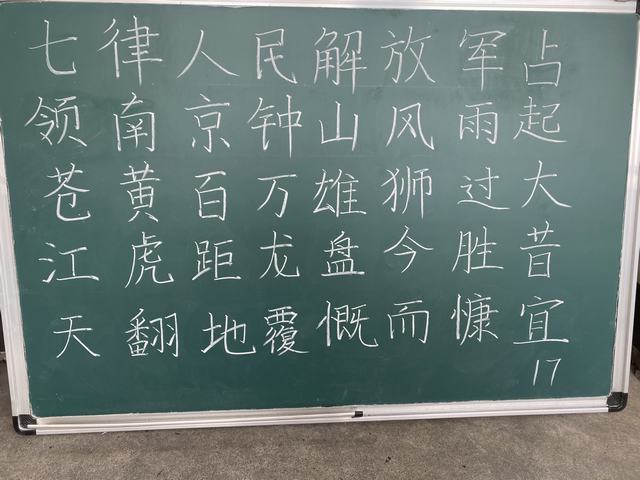 七律人民解放军占
领南京钟山风雨起
苍黄百万雄狮过大
江虎距龙盘今胜昔
天翻地覆慨而慷宜
17